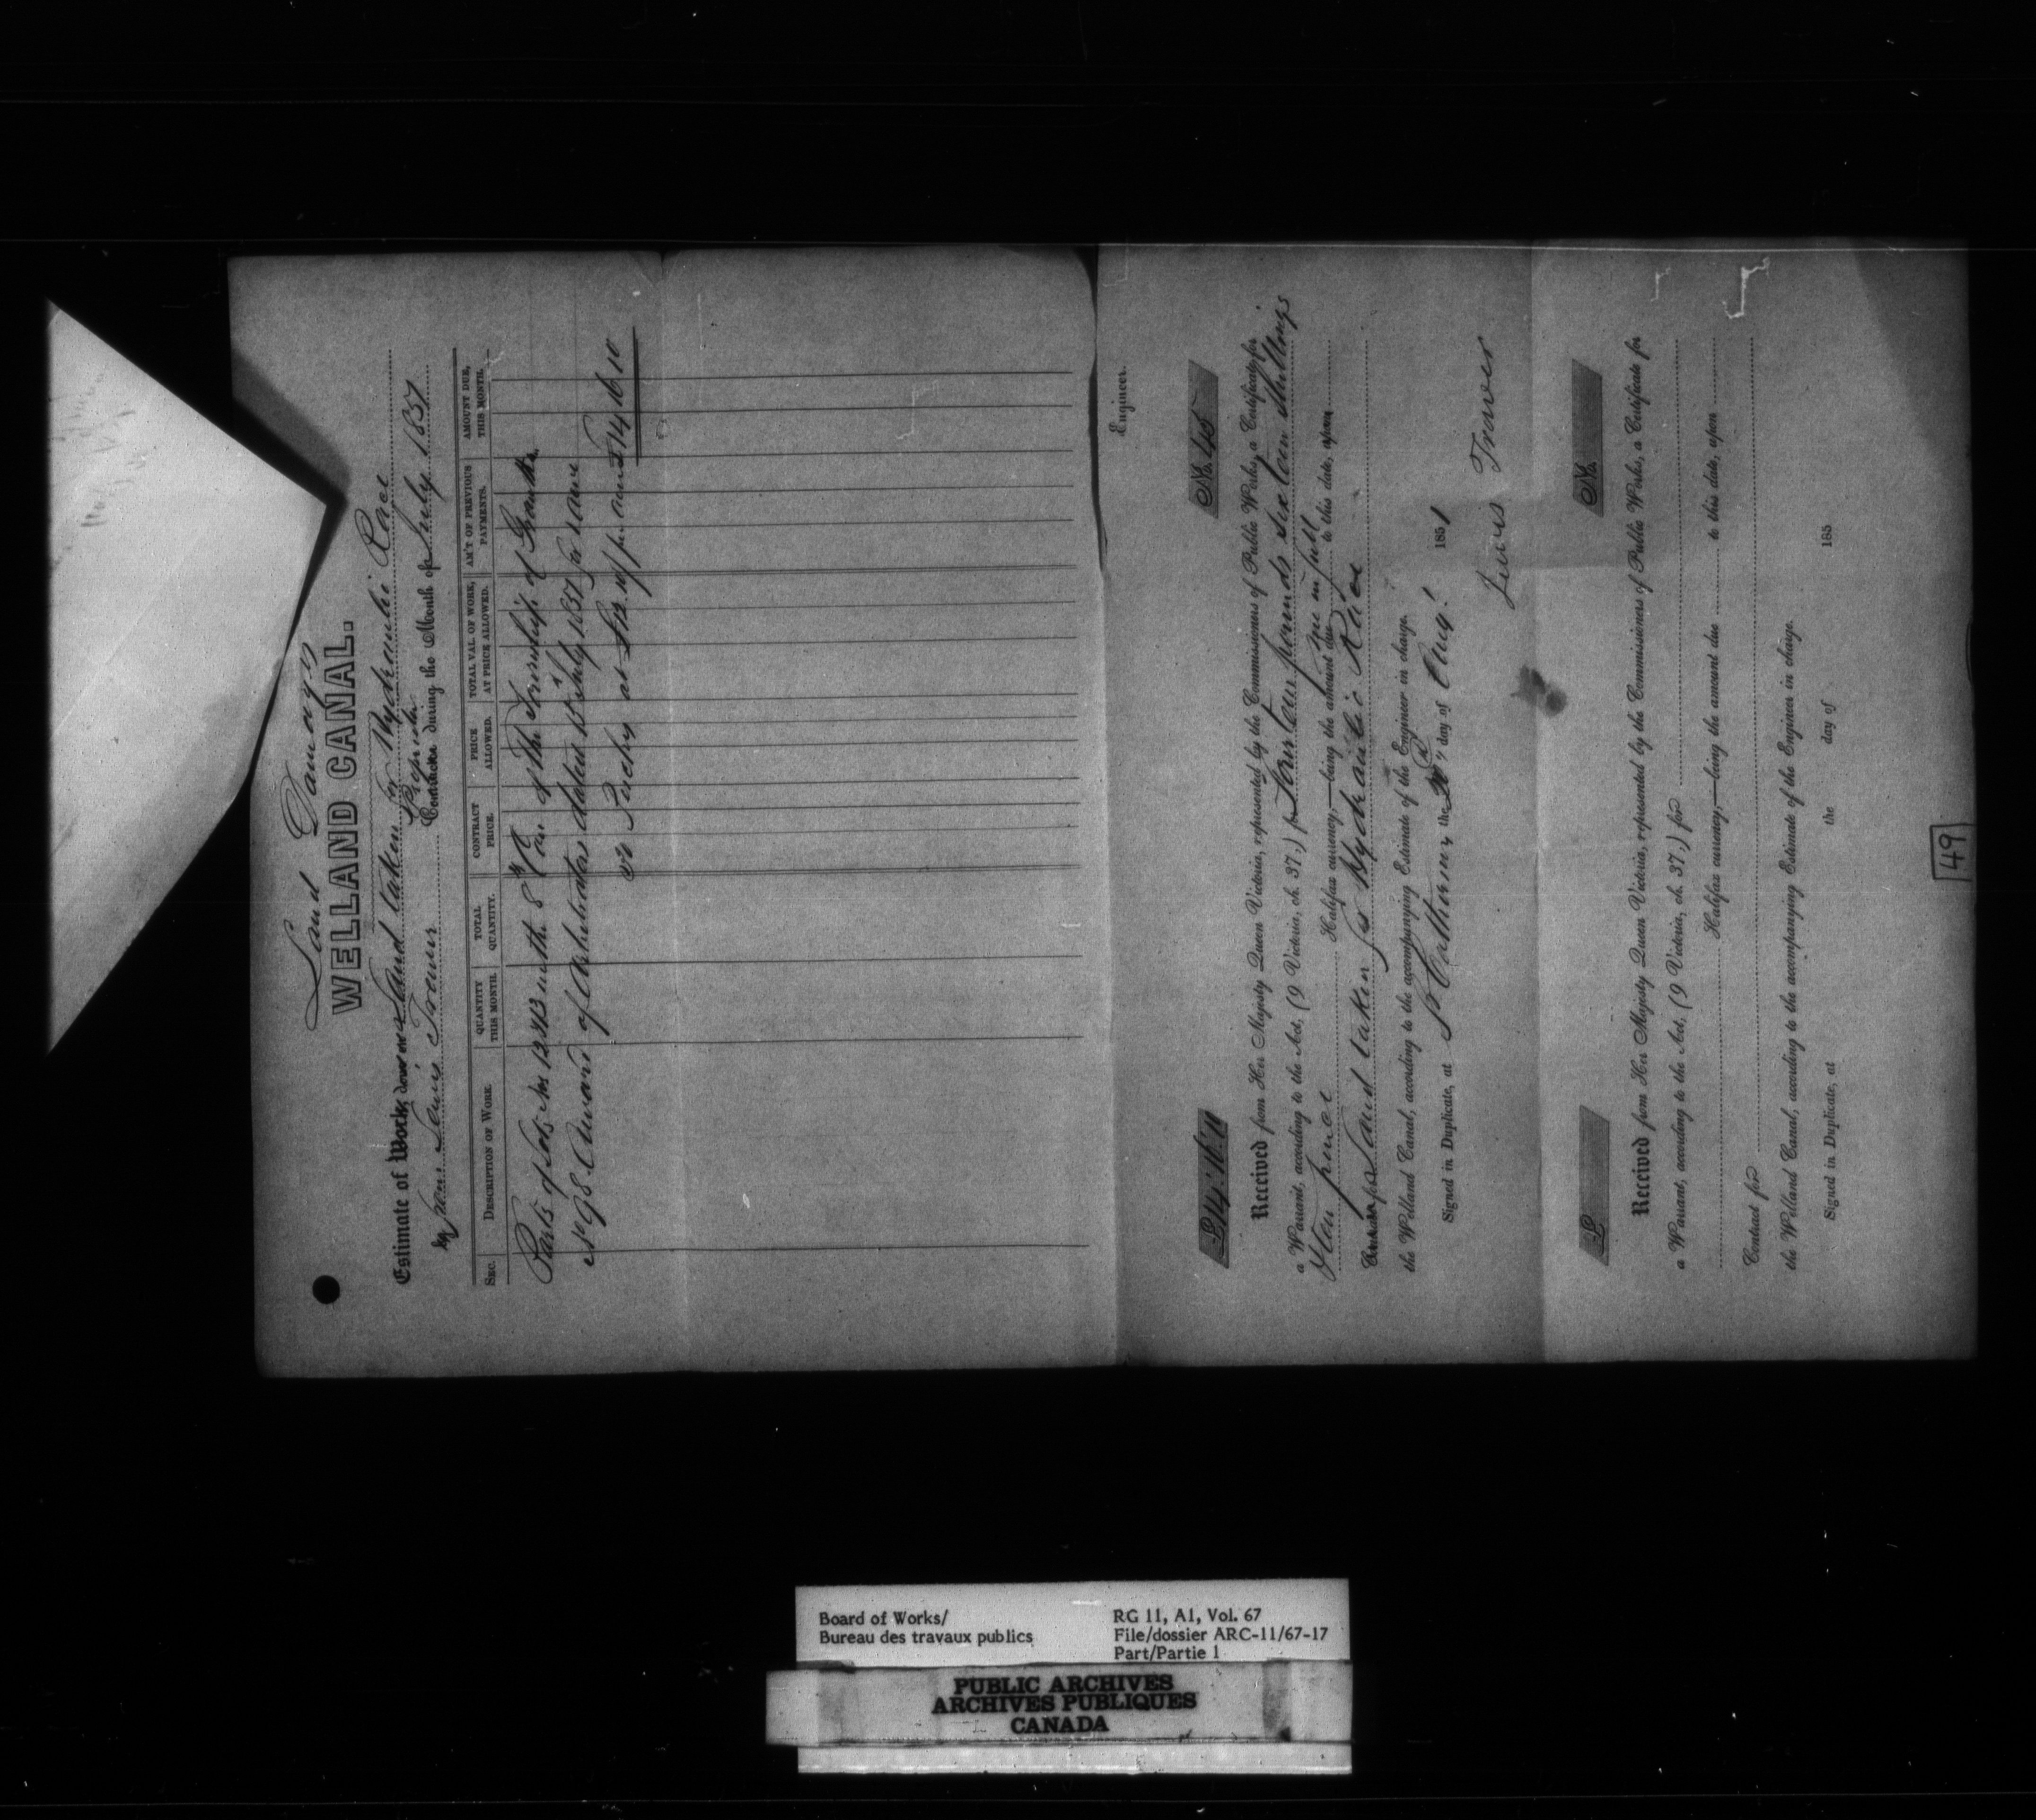 Land Damages
WELLAND CANAL.
Estimate of Work, done on Land taken for Hydraulic Race
from Lewis Traver Proprietor Contractor during the Month of July 1851
SEC. DESCRIPTION OF WORK. QUANTITY THIS MONTH. TOTAL QUANTITY. CONTRACT PRICE. PRICE ALLOWED. TOTAL VAL. OF WORK, AT PRICE ALLOWED. AM'T OF PREVIOUS PAYMENTS. AMOUNT DUE, THIS MONTH.
Parts of Lots Nos 12 & 13 in the 8th Con of the Township of Grantham
Award of Arbitrators dated 15th July 1851 for same
at per acre £14 16 10
Engineer.
£14:16:10 No. 45
Received from Her Majesty Queen Victoria, represented by the Commissioners of Public Works, a Certificate for
a Warrant, according to the Act, (9 Victoria, ch. 37,) for Fourteen pounds sixteen shillings
& ten pence Halifax currency,—being the amount due in full to this date, upon
Land taken for Hydraulic Race
the Welland Canal, according to the accompanying Estimate of the Engineer in charge.
Signed in Duplicate, at St Catherines the day of Augt 1851
Lewis Traver
£ No.
Received from Her Majesty Queen Victoria, represented by the Commissioners of Public Works, a Certificate for
a Warrant, according to the Act, (9 Victoria, ch. 37,) for
Halifax currency,—being the amount due to this date, upon
Contract for
the Welland Canal, according to the accompanying Estimate of the Engineer in charge.
Signed in Duplicate, at the day of 185
49
Board of Works/
Bureau des travaux publics
RG 11, A1, Vol. 67
File/dossier ARC-11/67-17
Part/Partie 1
PUBLIC ARCHIVES
ARCHIVES PUBLIQUES
CANADA